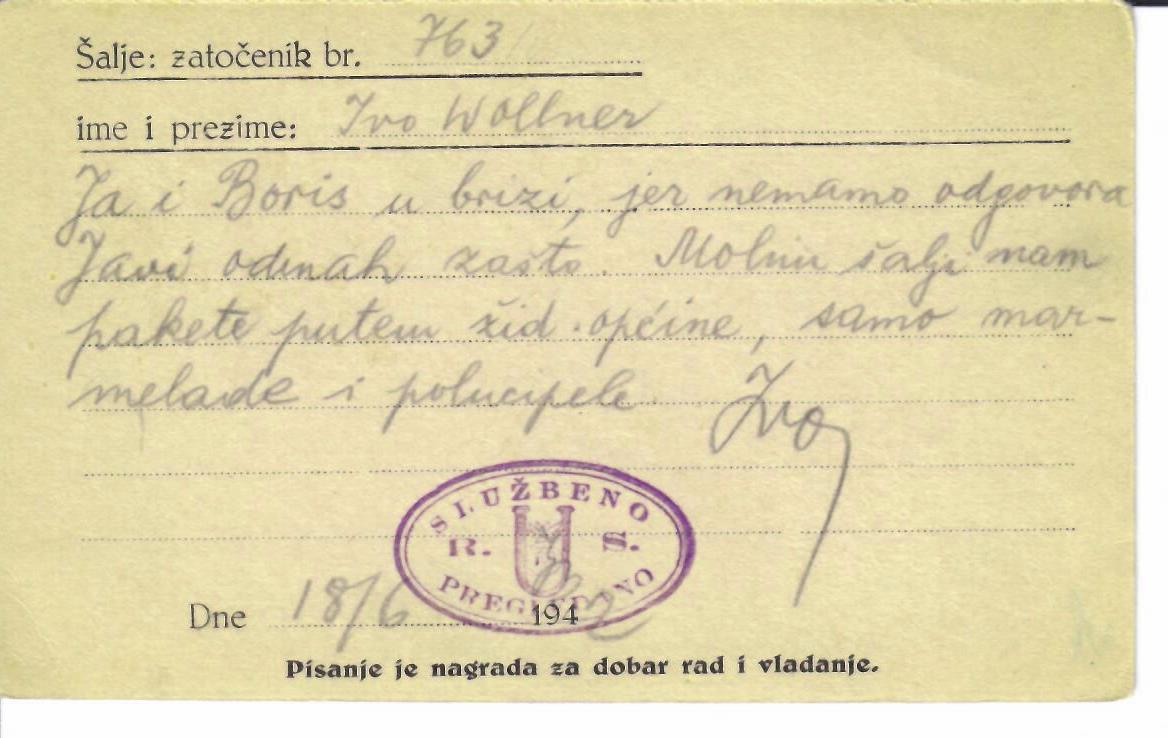 Šalje: zatočenik br. 763
ime i prezime: Ivo Wollner
Ja i Boris u brizi, jer nemamo odgovora
Javi odmah zašto. Molim šalji nam
pakete putem žid. općine, samo mar-
melade i polucipele Ivo
SLUŽBENO
R. U S.
PREGLEDANO
Dne 18/6 194
Pisanje je nagrada za dobar rad i vladanje.